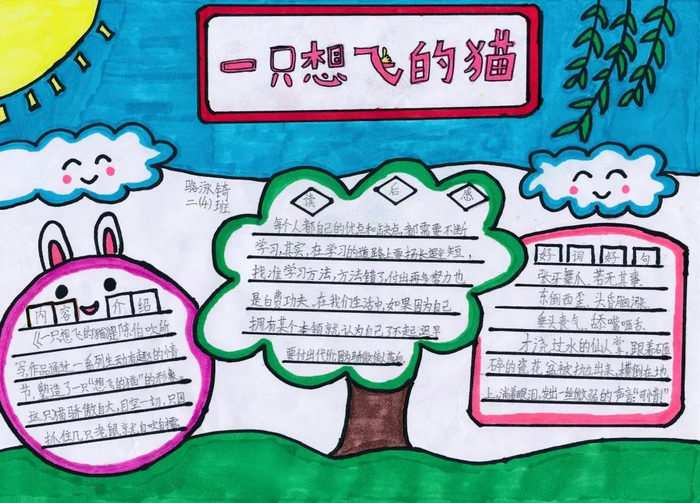 一只想飞的猫
骆泳锜
二(4)班
读后感
每个人都自己的优点和缺点,都需要不断
学习,其实,在学习的道路上要扬长避短,
找准学习方法,方法错了,付出再多努力也
是白费功夫、在我们生活中,如果因为自己
拥有某个本领就认为自己了不起,迟早
要付出代价
内容介绍
《一只想飞的猫》是陈伯吹所
写,作品通过一系列生动有趣的情
节,塑造了一只"想飞的猫"的形象。
这只猫骄傲自大,目空一切,只因
抓住几只老鼠就自吹自擂
好词好句
张牙舞爪、若无其事、
东倒西歪、头昏脑涨、
垂头丧气、舔嘴咂舌
才浇过水的仙人掌,跟着砸
碎的瓷花盆被扔出来,横倒在地
上,淌着眼泪,发出一丝微弱的声音:"可惜!"